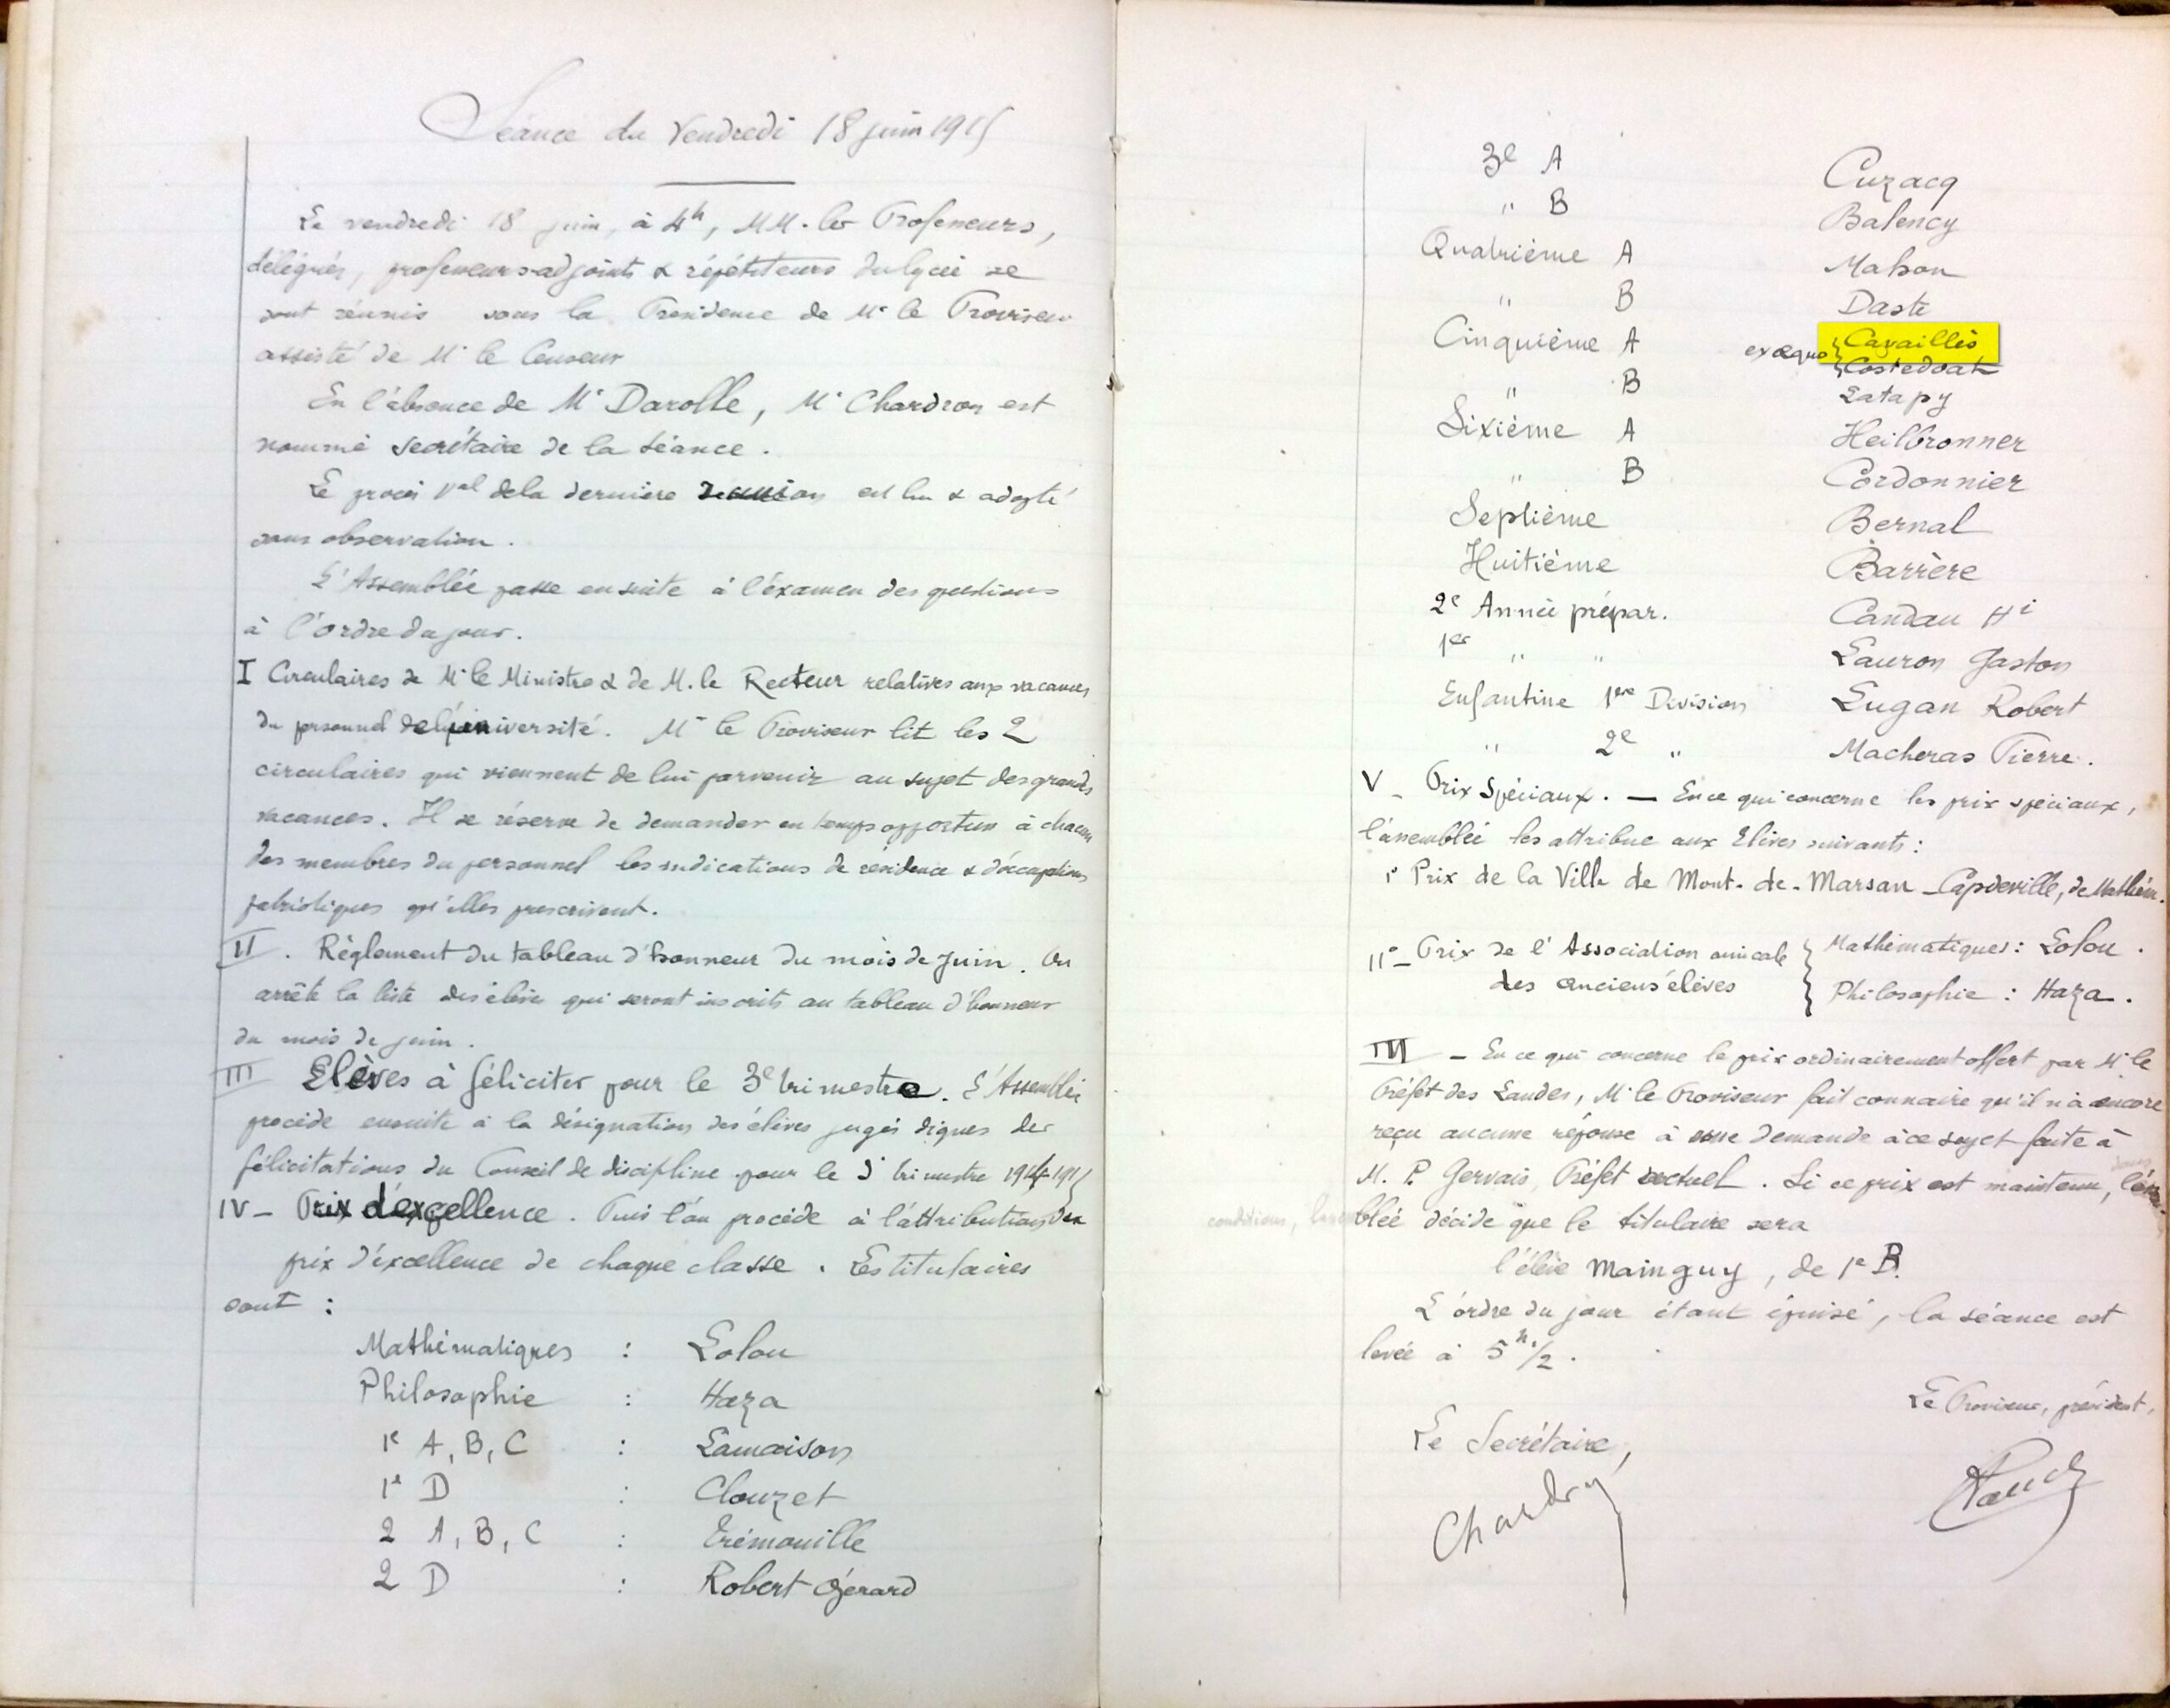 Séance du Vendredi 18 juin 1915
Le vendredi 18 juin, à 4h, MM. les Professeurs,
délégués, professeurs adjoints & répétiteurs du lycée se
sont réunis sous la Présidence de Mr le Proviseur
assisté de Mr le Censeur
En l'absence de Mr Darolle, Mr Chardron est
nommé Secrétaire de la séance.
Le procès Val de la dernière est lu & adopté
sans observation.
L'Assemblée passe ensuite à l'examen des questions
à l'ordre du jour.
I Circulaires de Mr le Ministre & de M. le Recteur relatives aux vacances
du personnel de l'université. Mr le Proviseur lit les 2
circulaires qui viennent de lui parvenir au sujet des grandes
vacances. Il se réserve de demander en temps opportun à chacun
des membres du personnel les indications de résidence & d'occupations
patriotiques qu'elles prescrivent.
II. Règlement du tableau d'honneur du mois de juin. On
arrête la liste des élèves qui seront inscrits au tableau d'honneur
du mois de juin.
III Elèves à féliciter pour le 3e trimestre. L'Assemblée
procède ensuite à la désignation des élèves jugés dignes des
félicitations du Conseil de discipline pour le 3e trimestre 1914-1915
IV - Prix d'excellence. Puis l'on procède à l'attribution des
prix d'excellence de chaque classe. Les titulaires
sont :
Mathématiques : Lolou
Philosophie : Haza
1e A, B, C : Lamaison
1e D : Clouzet
2 A, B, C : Trémouille
2 D : Robert Gérard
3e A Cuzacq
" B Balency
Quatrième A Maison
" B Daste
Cinquième A ex æquo { Cavaillès
{ Costedoat
" B Latapy
Sixième A Heilbronner
" B Cordonnier
Septième Bernal
Huitième Barrère
2e Année prépar. Candau Hi
1er " " Lauron Gaston
Enfantine 1ère Division Lugan Robert
" 2e " Macheras Pierre.
V - Prix Spéciaux. — En ce qui concerne les prix spéciaux,
l'assemblée les attribue aux Elèves suivants :
1° Prix de la Ville de Mont-de-Marsan - Capdeville, de Mathém.
11° - Prix de l'Association amicale { Mathématiques : Lolou.
des anciens élèves { Philosophie : Haza.
III - En ce qui concerne le prix ordinairement offert par Mr le
Préfet des Landes, Mr le Proviseur fait connaire qu'il n'a encore
reçu aucune réponse à une demande à ce sujet faite à
M. P. Gervais, Préfet actuel. Si ce prix est maintenu,
conditions, blée décide que le titulaire sera
l'élève Mainguy, de 1e B.
L'ordre du jour étant épuisé, la séance est
levée à 5h 1/2.
Le Proviseur, président,
Le Secrétaire,
Chardron